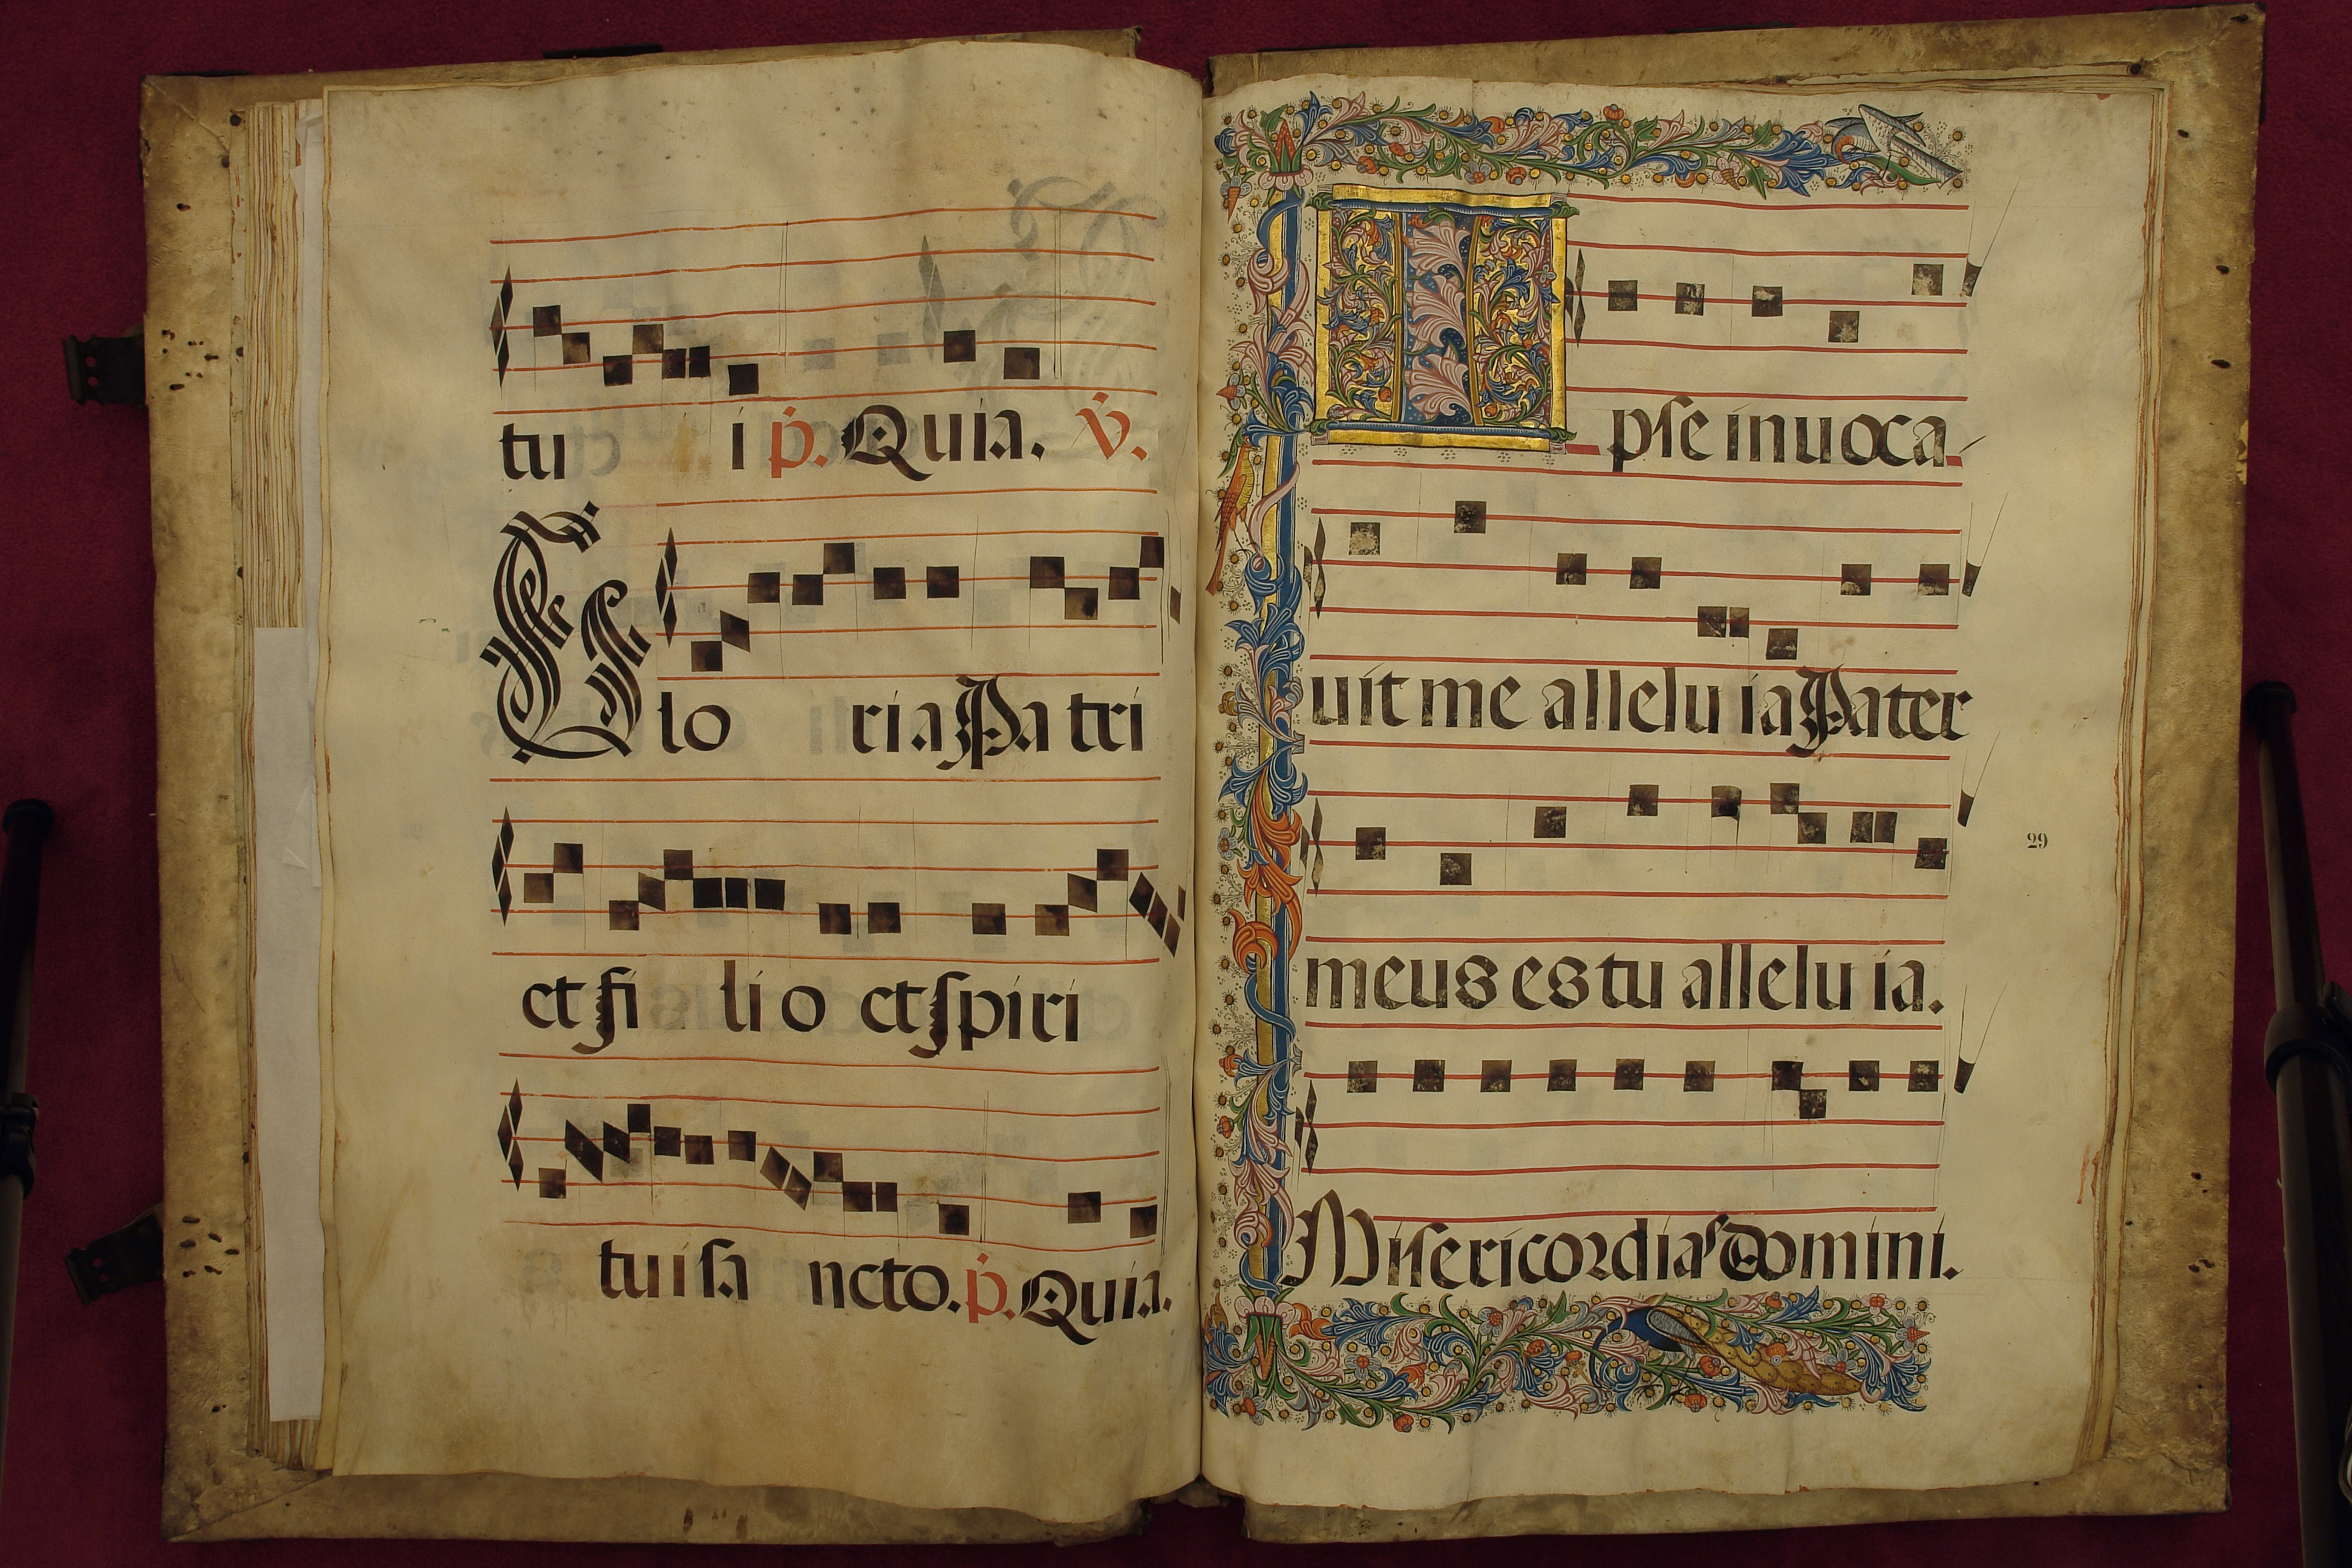 tu i p. Quia. V.
Glo ria Pa tri
et fi li o et spiri
tui sa ncto. p. Quia.
Ipse inuoca
uit me allelu ia Pater
meus es tu allelu ia.
29
Misericordias Domini.